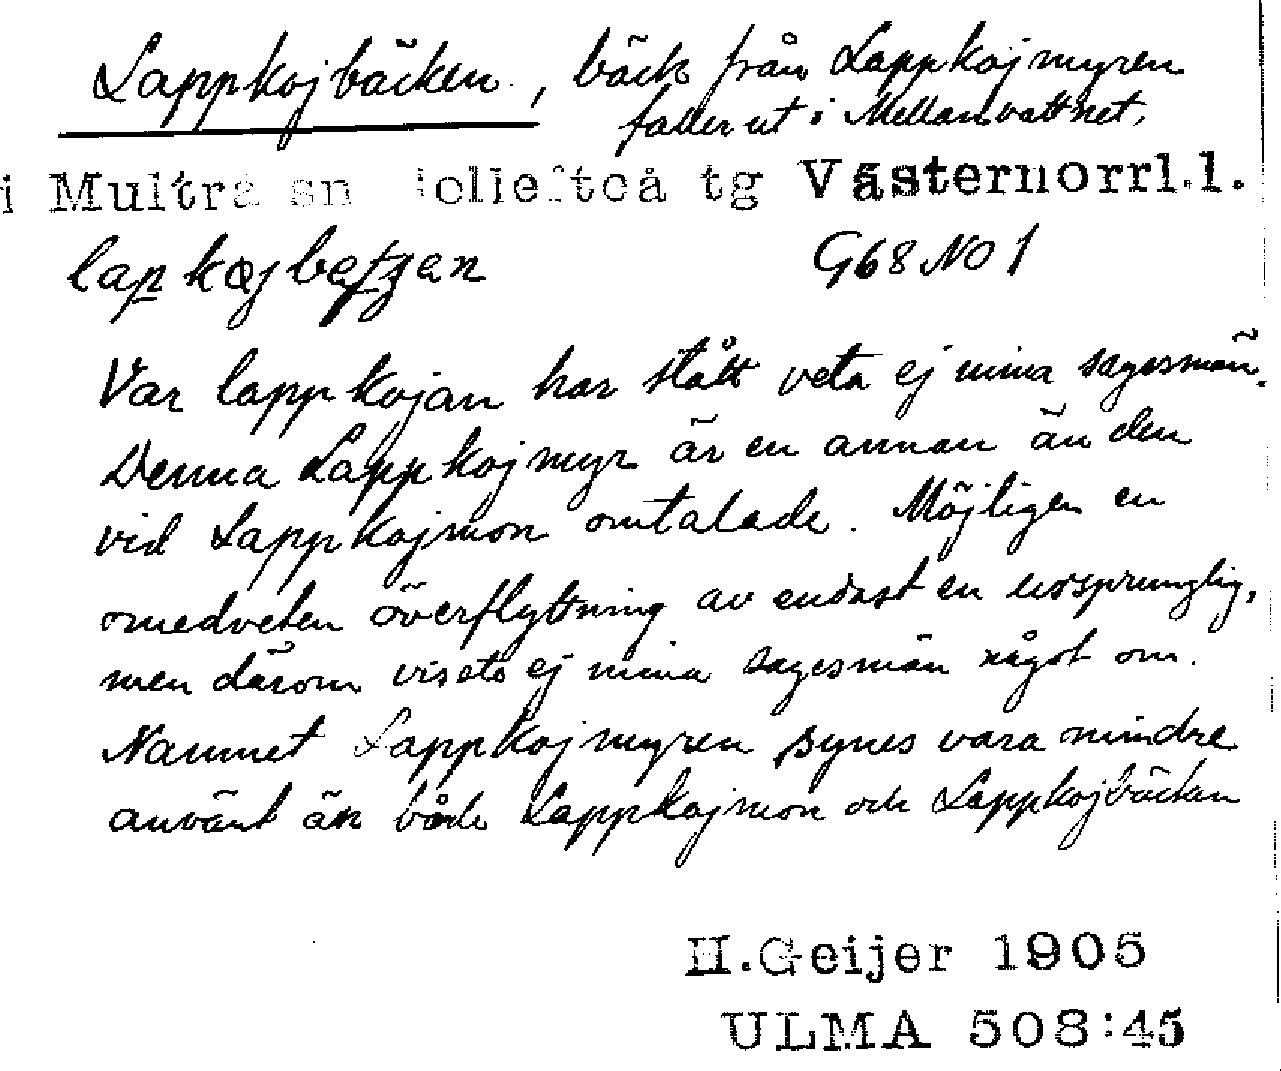 Lappkojbäcken, bäck från Lappkojmyren
faller ut i Mellanvattnet,
i Multrå sn Sollefteå tg Västernorrl.l.
G68 NO 1
Var lappkojan har stått veta ej mina sagesmän.
Denna Lappkojmyr är en annan än den
vid Lappkojmon omtalade. Möjligen en
omedveten överflyttning av endast en ursprunglig,
men därom visste ej mina sagesmän något om.
Namnet Lappkojmyren synes vara mindre
använt än både Lappkojmon och Lappkojbäcken
H.Geijer 1905
ULMA 508:45